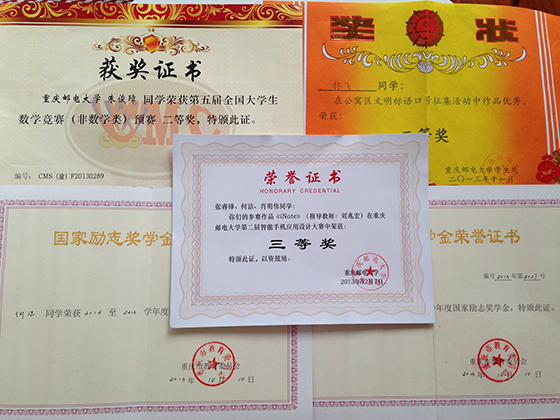 获奖证书
重庆邮电大学 朱俊璋 同学荣获第五届全国大学生
数学竞赛（非数学类）预赛 二等奖，特颁此证。
CMC
编号： CMS (渝) F20130289
奖状
同学：
在公寓区文明标语口号征集活动中作品优秀。
荣获：
二等奖
重庆邮电大学学生处
二〇一三年十一月
荣誉证书
HONORARY CREDENTIAL
张睿锋、何洁、肖明伟同学：
你们的参赛作品《iNote》（指导教师：刘兆宏）在重庆
邮电大学第二届智能手机应用设计大赛中荣获：
三等奖
特颁此证，以资鼓励。
重庆邮电大学
2013年12月
国家励志奖学金
何洁 同学荣获 至 学年度
重庆市教育委员会
12月10日
学金荣誉证书
年度国家励志奖学金，特颁此证。
重庆市教育委员会
12月10日